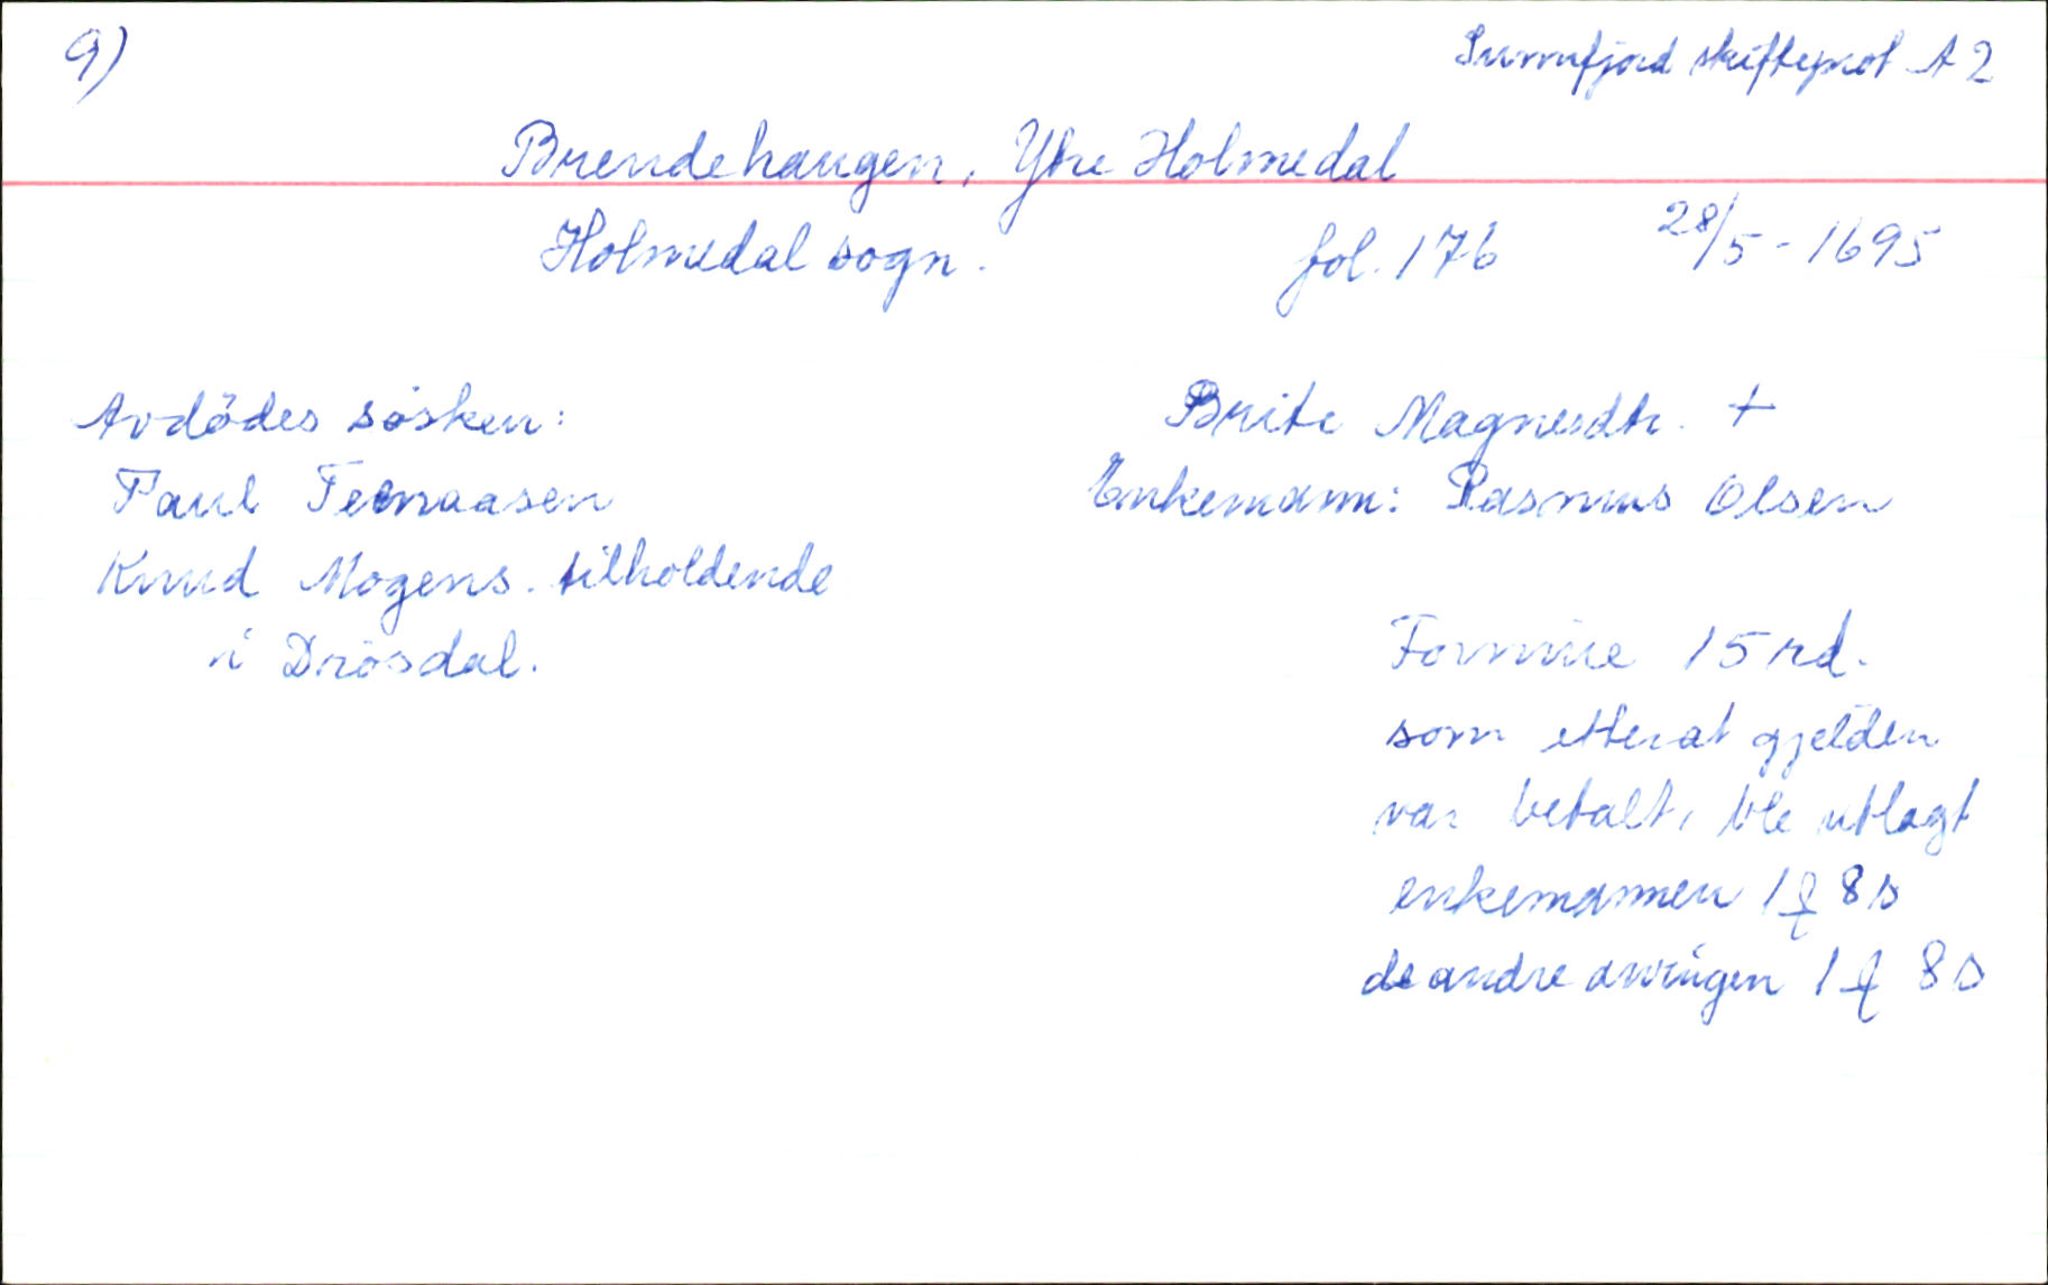 9)
Sunnfjord skifteprot A 2
Brendehaugen, Ytre Holmedal
Holmedal sogn.
fol. 176
28/5 - 1695
Avdödes sösken:
Paul
Knud Mogens. tilholdende
i Drösdal.
Brite Magnesdtr. +
Enkemann: Rasmus Olsen
Formue 15 rd.
som etterat gjelden
var betalt, ble utlagt
enkemannen 1 8 s
de andre arvingen 1 8 s